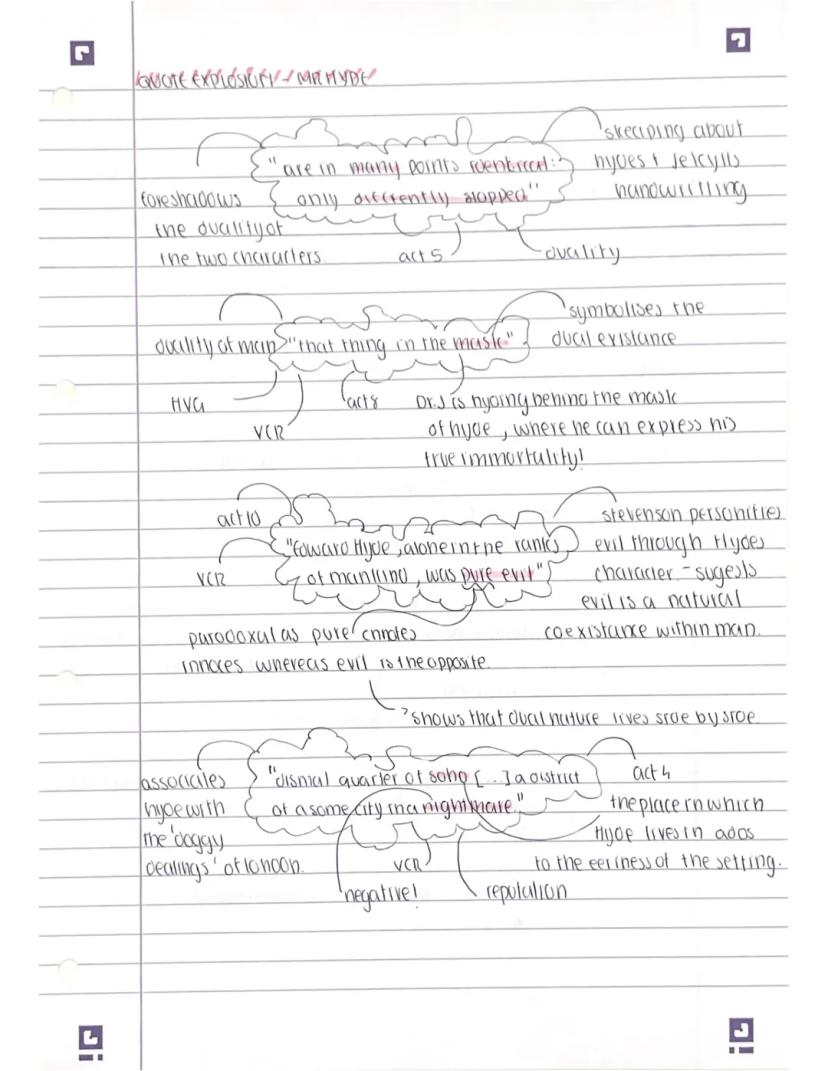 QUOTE EXPLOSION - MR HYDE
"are in many points identical:
only differently slopped"
skeciping about
hydes + Jekylls
handwriting
foreshadows
the duality of
the two characters.
act 5
duality
duality of man
"that thing in the mask"
symbolises the
dual existance
HVG
VCR
act 8
Dr.J is hyding behind the mask
of hyde, where he can express his
true immortality!
act 10
"Edward Hyde, alone in the ranks
of mankind, was pure evil"
VCR
stevenson personifies
evil through Hydes
character - sugests
evil is a natural
coexistance within man.
paradoxal as pure
innoces whereas evil is the opposite.
shows that dual nature lives side by side.
associates
hyde with
the 'doggy
dealings' of london.
"dismal quarter of soho [...] a district
of a some city in a nightmare."
act 4
the place in which
Hyde lives in adds
to the eeriness of the setting.
VCR
negative!
reputation